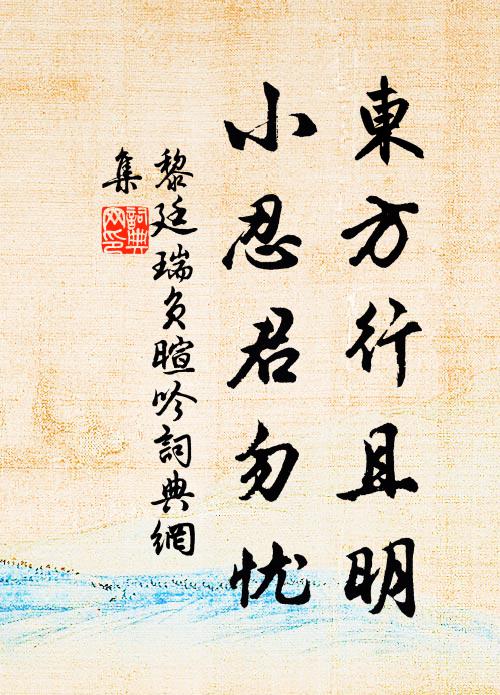 東方行且明
小忍君勿忧
黎廷瑞负暄吟詞典網
集
詞典网印